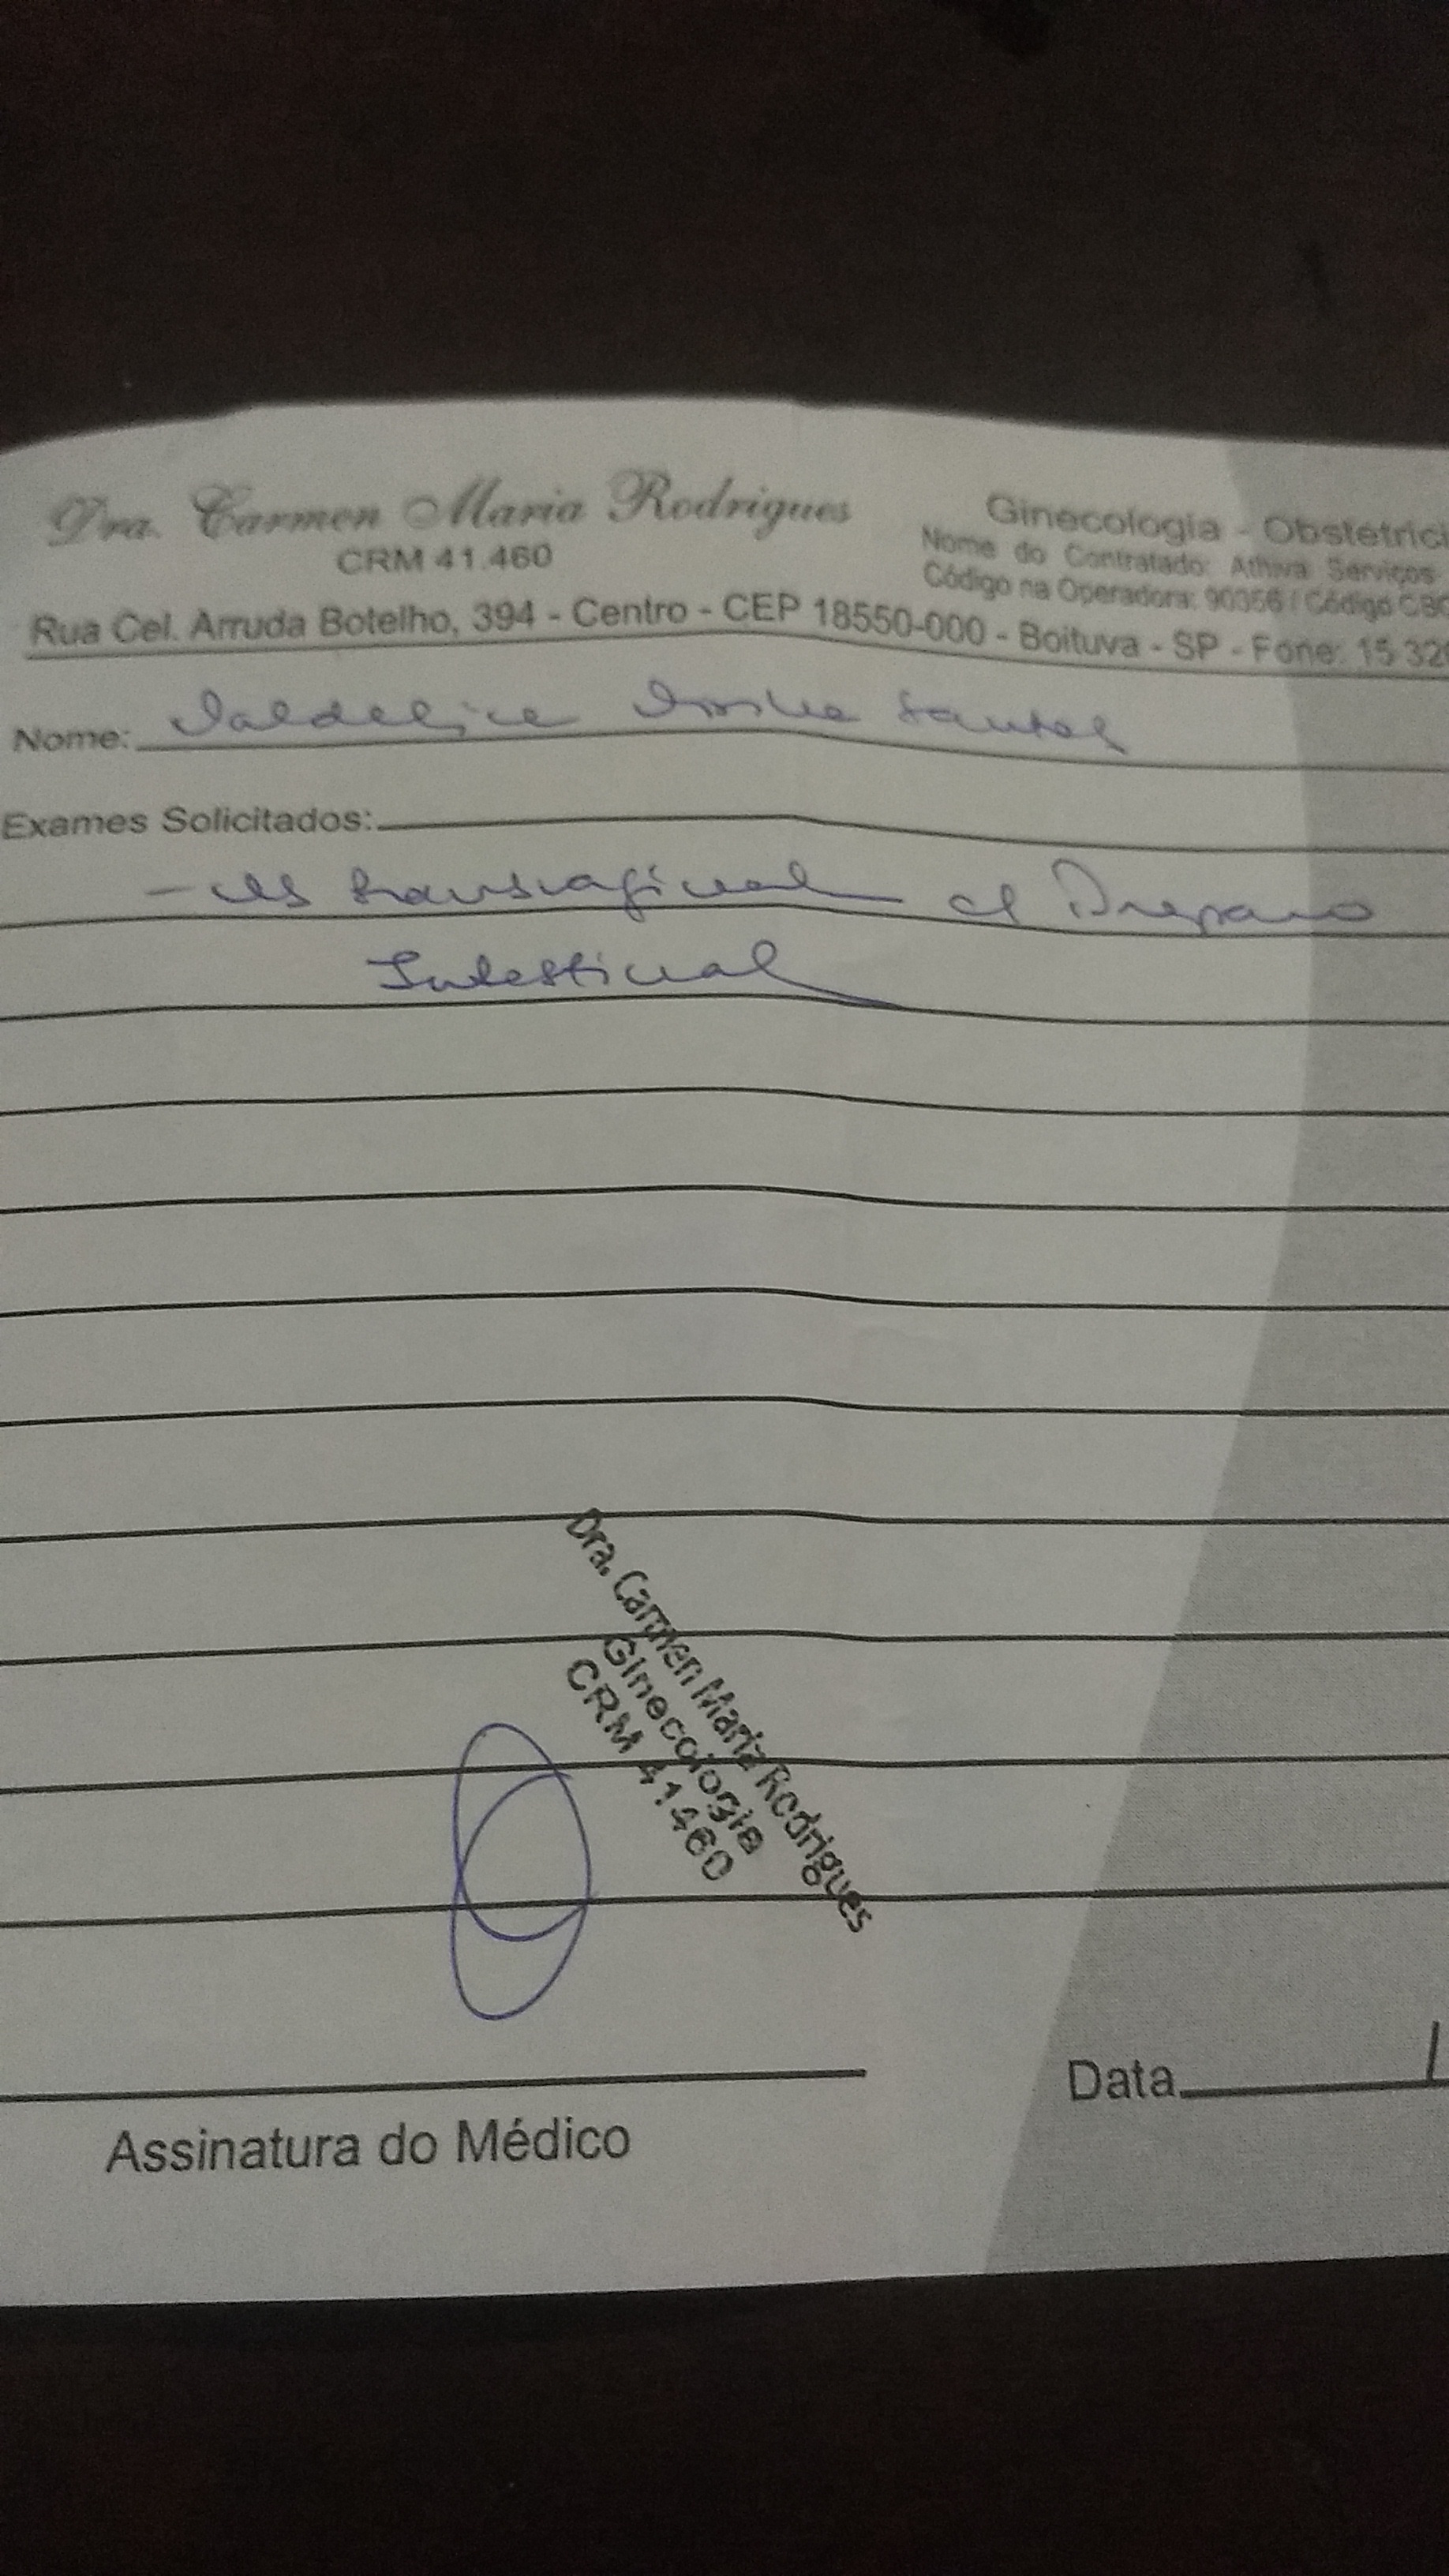 Dra. Carmen Maria Rodrigues
CRM 41.460
Ginecologia - Obstetríci
Nome do Contratado: Athiva Serviços
Código na Operadora: 90356 / Código CBO
Rua Cel. Arruda Botelho, 394 - Centro - CEP 18550-000 - Boituva - SP - Fone: 15 32
Nome: Valdelice Santos
Exames Solicitados:
- US transvaginal c/ Preparo
Intestinal
Dra. Carmen Maria Rodrigues
Ginecologia
CRM 41460
Data /
Assinatura do Médico